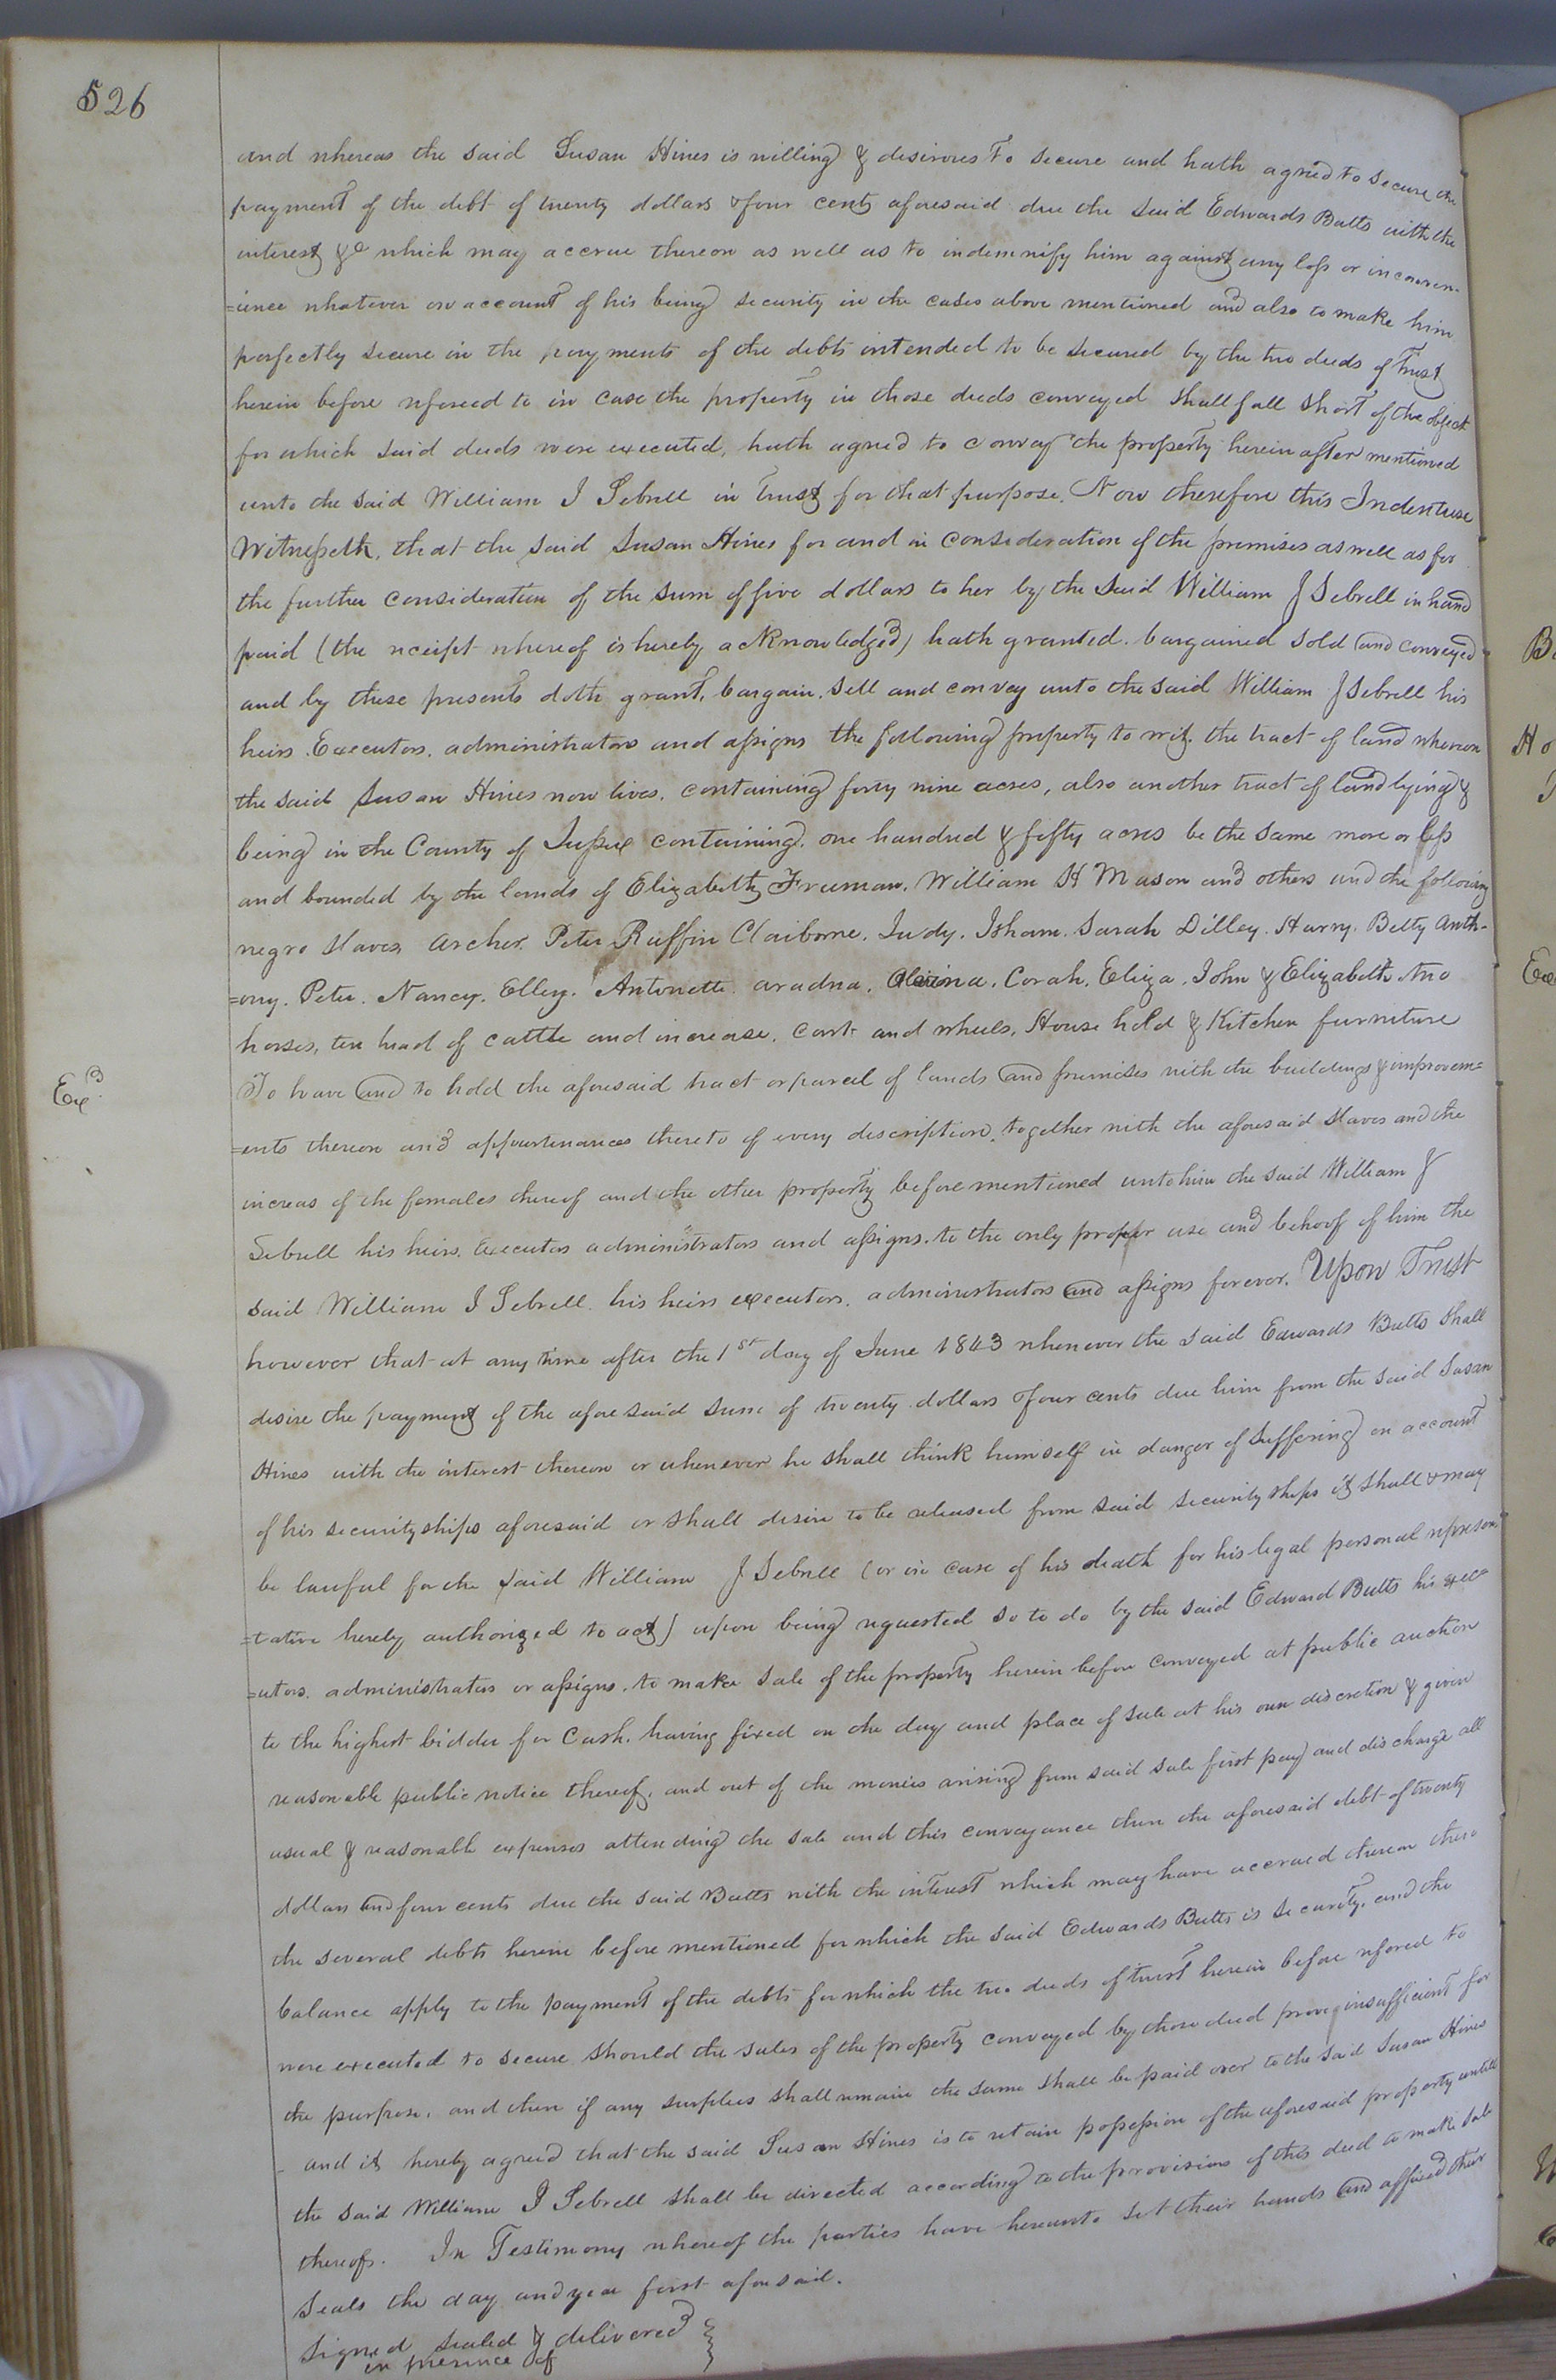 526
and whereas the said Susan Hines is willing & desirous to secure and hath agreed to secure the
payment of the debt of twenty dollars & four cents aforesaid due the said Edwards Butts with the
interest &c which may accrue thereon as well as to indemnify him against any loss or inconven-
=ience whatever on account of his being security in the cases above mentioned and also to make him
perfectly secure in the payments of the debts intended to be secured by the two deeds of Trust
herein before refered to in case the property in those deeds conveyed shall fall short of the object
for which said deeds were executed, hath agreed to convey the property herein after mentioned
unto the said William J Sebrell in Trust for that purpose. Now therefore this Indenture
Witnesseth, that the said Susan Hines for and in consideration of the premises as well as for
the further consideration of the sum of five dollars to her by the said William J Sebrell in hand
paid (the receipt whereof is hereby acknowledged) hath granted. bargained sold and conveyed
and by these presents doth grant, bargain, sell and convey unto the said William J Sebrell his
heirs. Executors. administrators and assigns the following property to wit. the tract of land whereon
the said Susan Hines now lives, containing forty nine acres, also another tract of land lying &
being in the County of Sussex containing. one hundred & fifty acres be the same more or less
and bounded by the lands of Elizabeth Freeman, William H Mason and others and the following
negro slaves Archer. Peter Ruffin Claiborne. Judy. Isham. Sarah Dilley. Harry. Betty Anth-
=ony. Peter. Nancy. Elley. Antonette. aradna, Corah, Eliza, John & Elizabeth two
horses, ten head of cattle and increase, cart and wheels, House hold & Kitchen furniture
To have and to hold the aforesaid tract or parcel of lands and premises with the buildings & improvem=
Exd
=ents thereon and appurtenances thereto of every description, together with the aforesaid slaves and the
increas of the females thereof and the other property before mentioned unto him the said William J
Sebrell his heirs. Executors administrators and assigns. to the only proper use and behoof of him the
said William J Sebrell. his heirs executors. administrators and assigns forever. Upon Trust
however that at any time after the 1st day of June 1843 whenever the said Edwards Butts shall
desire the payment of the aforesaid sum of twenty dollars & four cents due him from the said Susan
Hines with the interest thereon or whenever he shall think himself in danger of suffering on account
of his securityships aforesaid or shall desire to be released from said securityships it shall & may
be lawful for the said William J Sebrell (or in case of his death for his legal personal represen-
=tative hereby authorized to act) upon being requested so to do by the said Edward Butts his exec
=utors. administrators or assigns. to make sale of the property herein before conveyed at public auction
to the highest bidder for Cash. having fixed on the day and place of sale at his own discretion & given
reasonable public notice thereof, and out of the monies arising from said sale first pay and discharge all
usual & reasonable expenses attending the sale and this conveyance then the aforesaid debt of twenty
dollars and four cents due the said Butts with the interest which may have accrued thereon then
the several debts herein before mentioned for which the said Edwards Butts is security, and the
balance apply to the payment of the debts for which the two deeds of trust herein before refered to
were executed to secure should the sales of the property conveyed by those deed prove insufficient for
the purpose, and then if any surplus shall remain the same shall be paid over to the said Susan Hines
and it hereby agreed that the said Susan Hines is to retain possession of the aforesaid property untill
the said William J Sebrell shall be directed according to the provisions of this deed to make sale
thereof. In Testimony whereof the parties have hereunto set their hands and affixed their
seals the day and year first aforesaid.
Signed sealed & delivered
in presence of